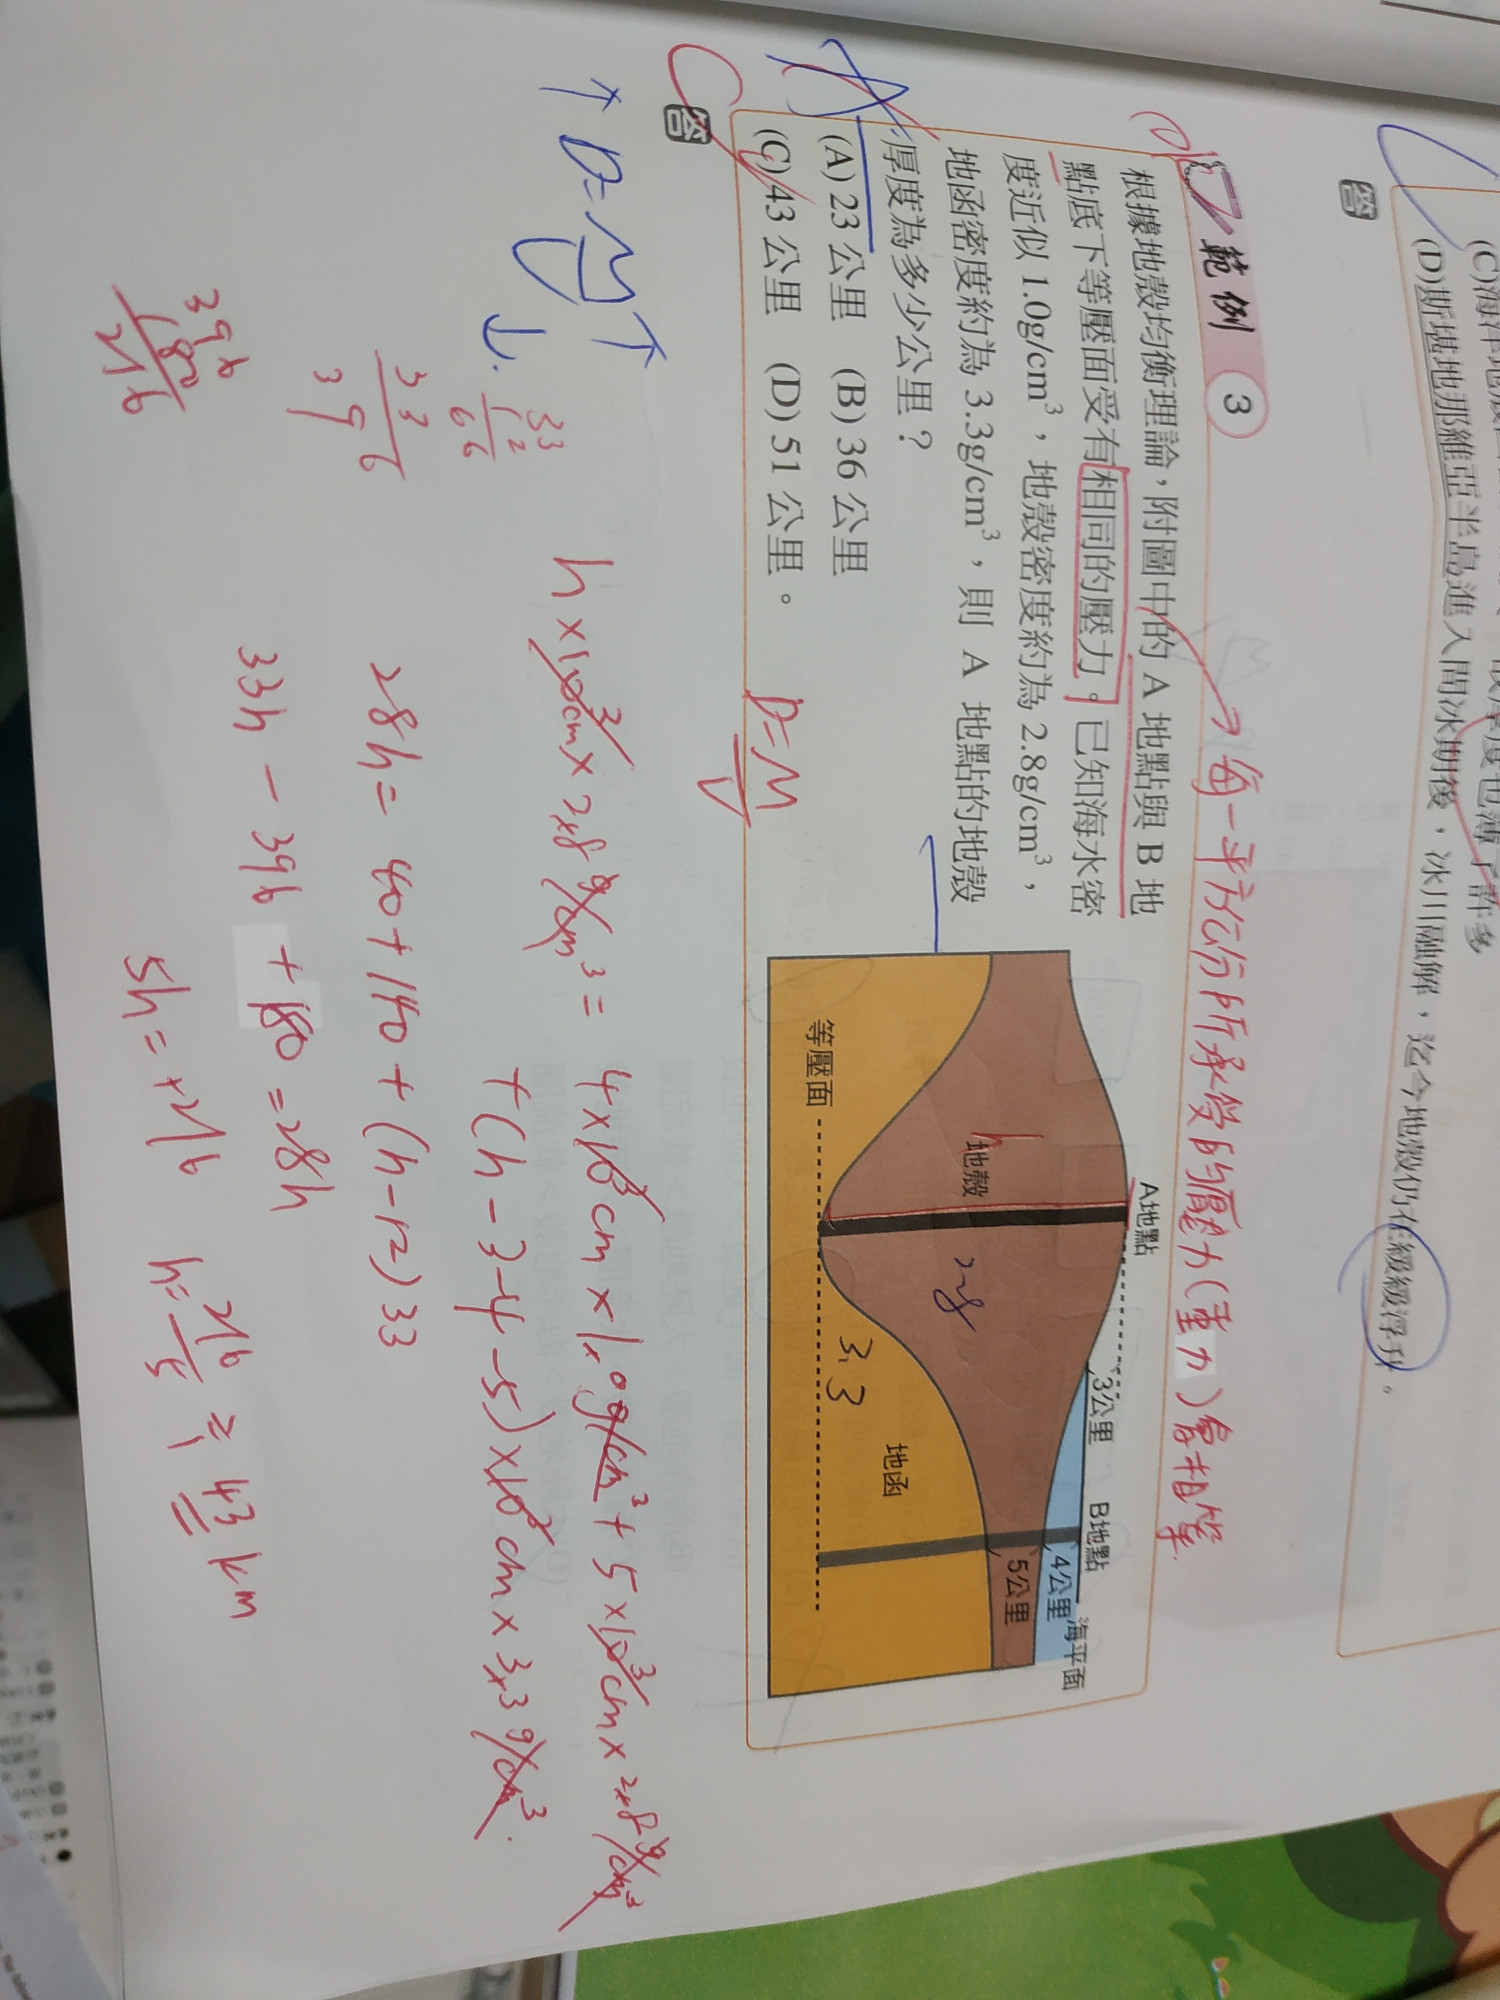 (C)海洋地殼
(D)斯堪地那維亞半島進入間冰期後,冰川融解,迄今地殼仍在緩緩浮升。
答
範例 3
每一平方公分所承受的壓力(重力)會相等
根據地殼均衡理論,附圖中的 A 地點與 B 地
點底下等壓面受有相同的壓力。已知海水密
度近似 1.0g/cm³,地殼密度約為 2.8g/cm³,
地函密度約為 3.3g/cm³,則 A 地點的地殼
厚度為多少公里?
(A) 23 公里 (B) 36 公里
(C) 43 公里 (D) 51 公里。
答
C
A地點
3公里
B地點
海平面
4公里
5公里
地殼
h
28
3.3
地函
等壓面
D=M/V
D=M/V
h×10³cm×2.8g/cm³= 4×10³cm×1.0g/cm³+5×10³cm×2.8g/cm³
+(h-3-4-5)×10³cm×3.3g/cm³
28h=40+140+(h-12)33
33h-396+180=28h
5h=+216
h=216/5≒43km
33
12
66
33
396
396
180
216